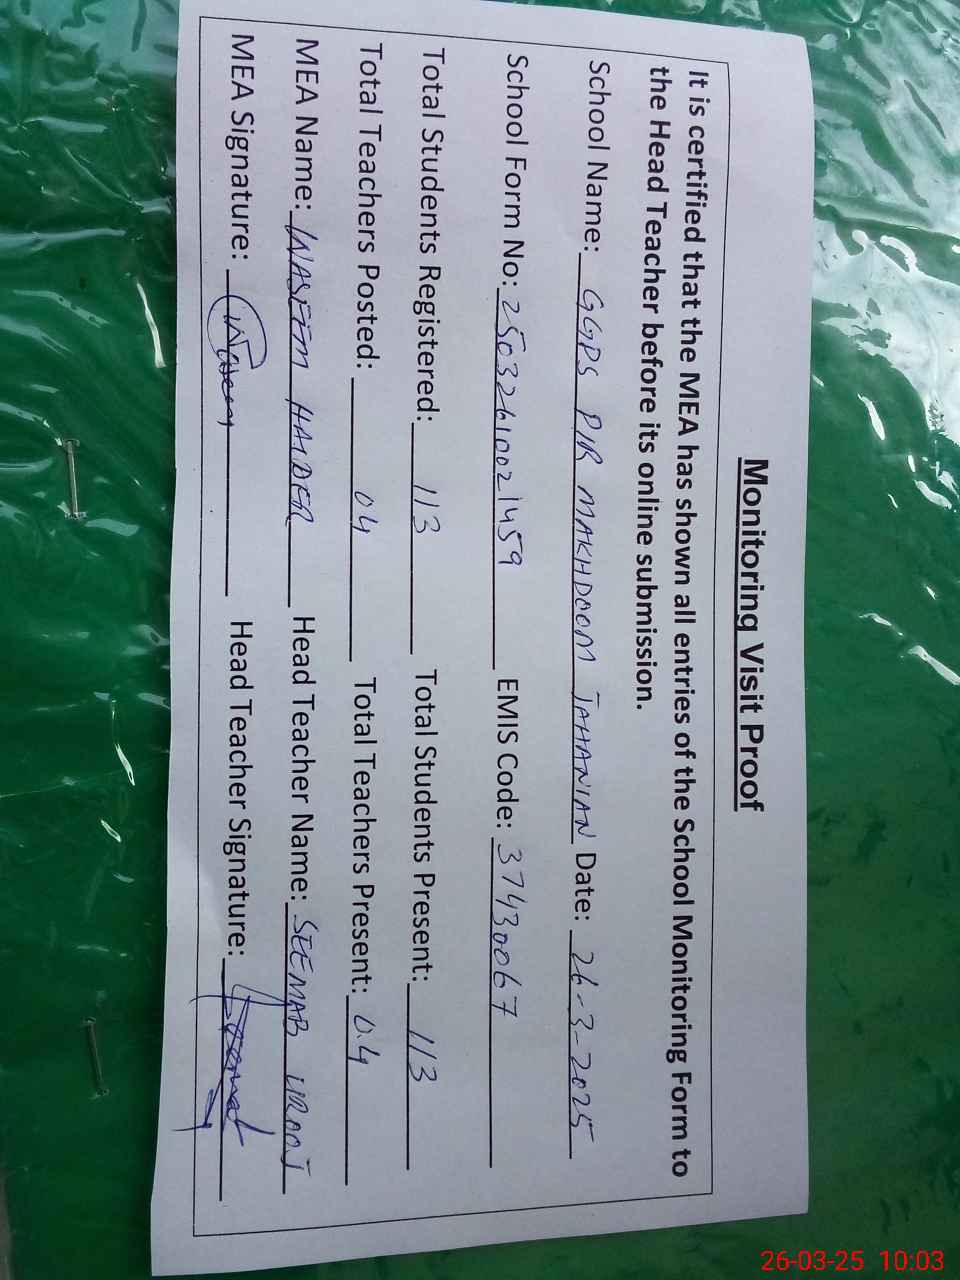 Monitoring Visit Proof
It is certified that the MEA has shown all entries of the School Monitoring Form to
the Head Teacher before its online submission.
School Name: GGPS PIR MAKHDOOM JAHANIAN Date: 26-3-2025
School Form No: 25032610021459 EMIS Code: 37430067
Total Students Registered: 113 Total Students Present: 113
Total Teachers Posted: 04 Total Teachers Present: 04
MEA Name: WASEEM HAIDER Head Teacher Name: SEEMAB UROOJ
MEA Signature: Waseem Head Teacher Signature:
26-03-25 10:03